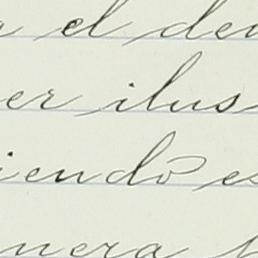 a el de
er ilus
iendo es
nera